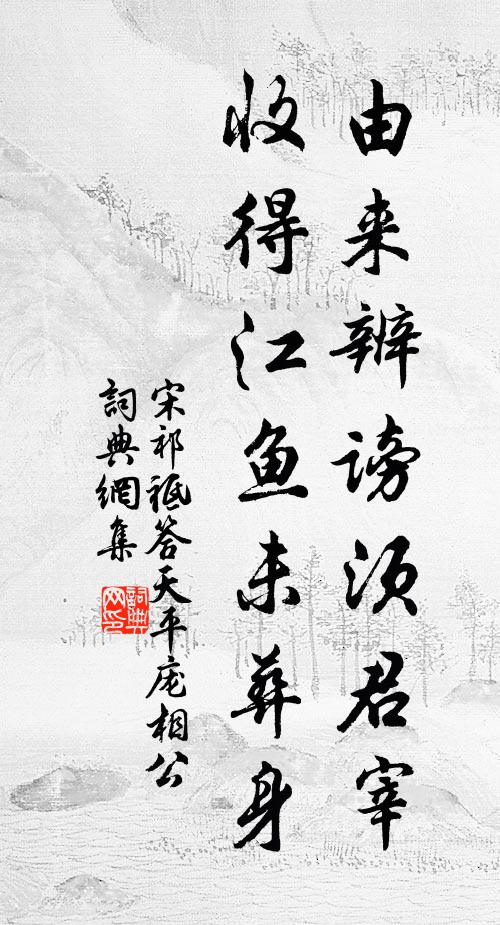 由来辨谤须君宰
收得江鱼未葬身
宋祁祗答天平庞相公
詞典網集
詞典网印